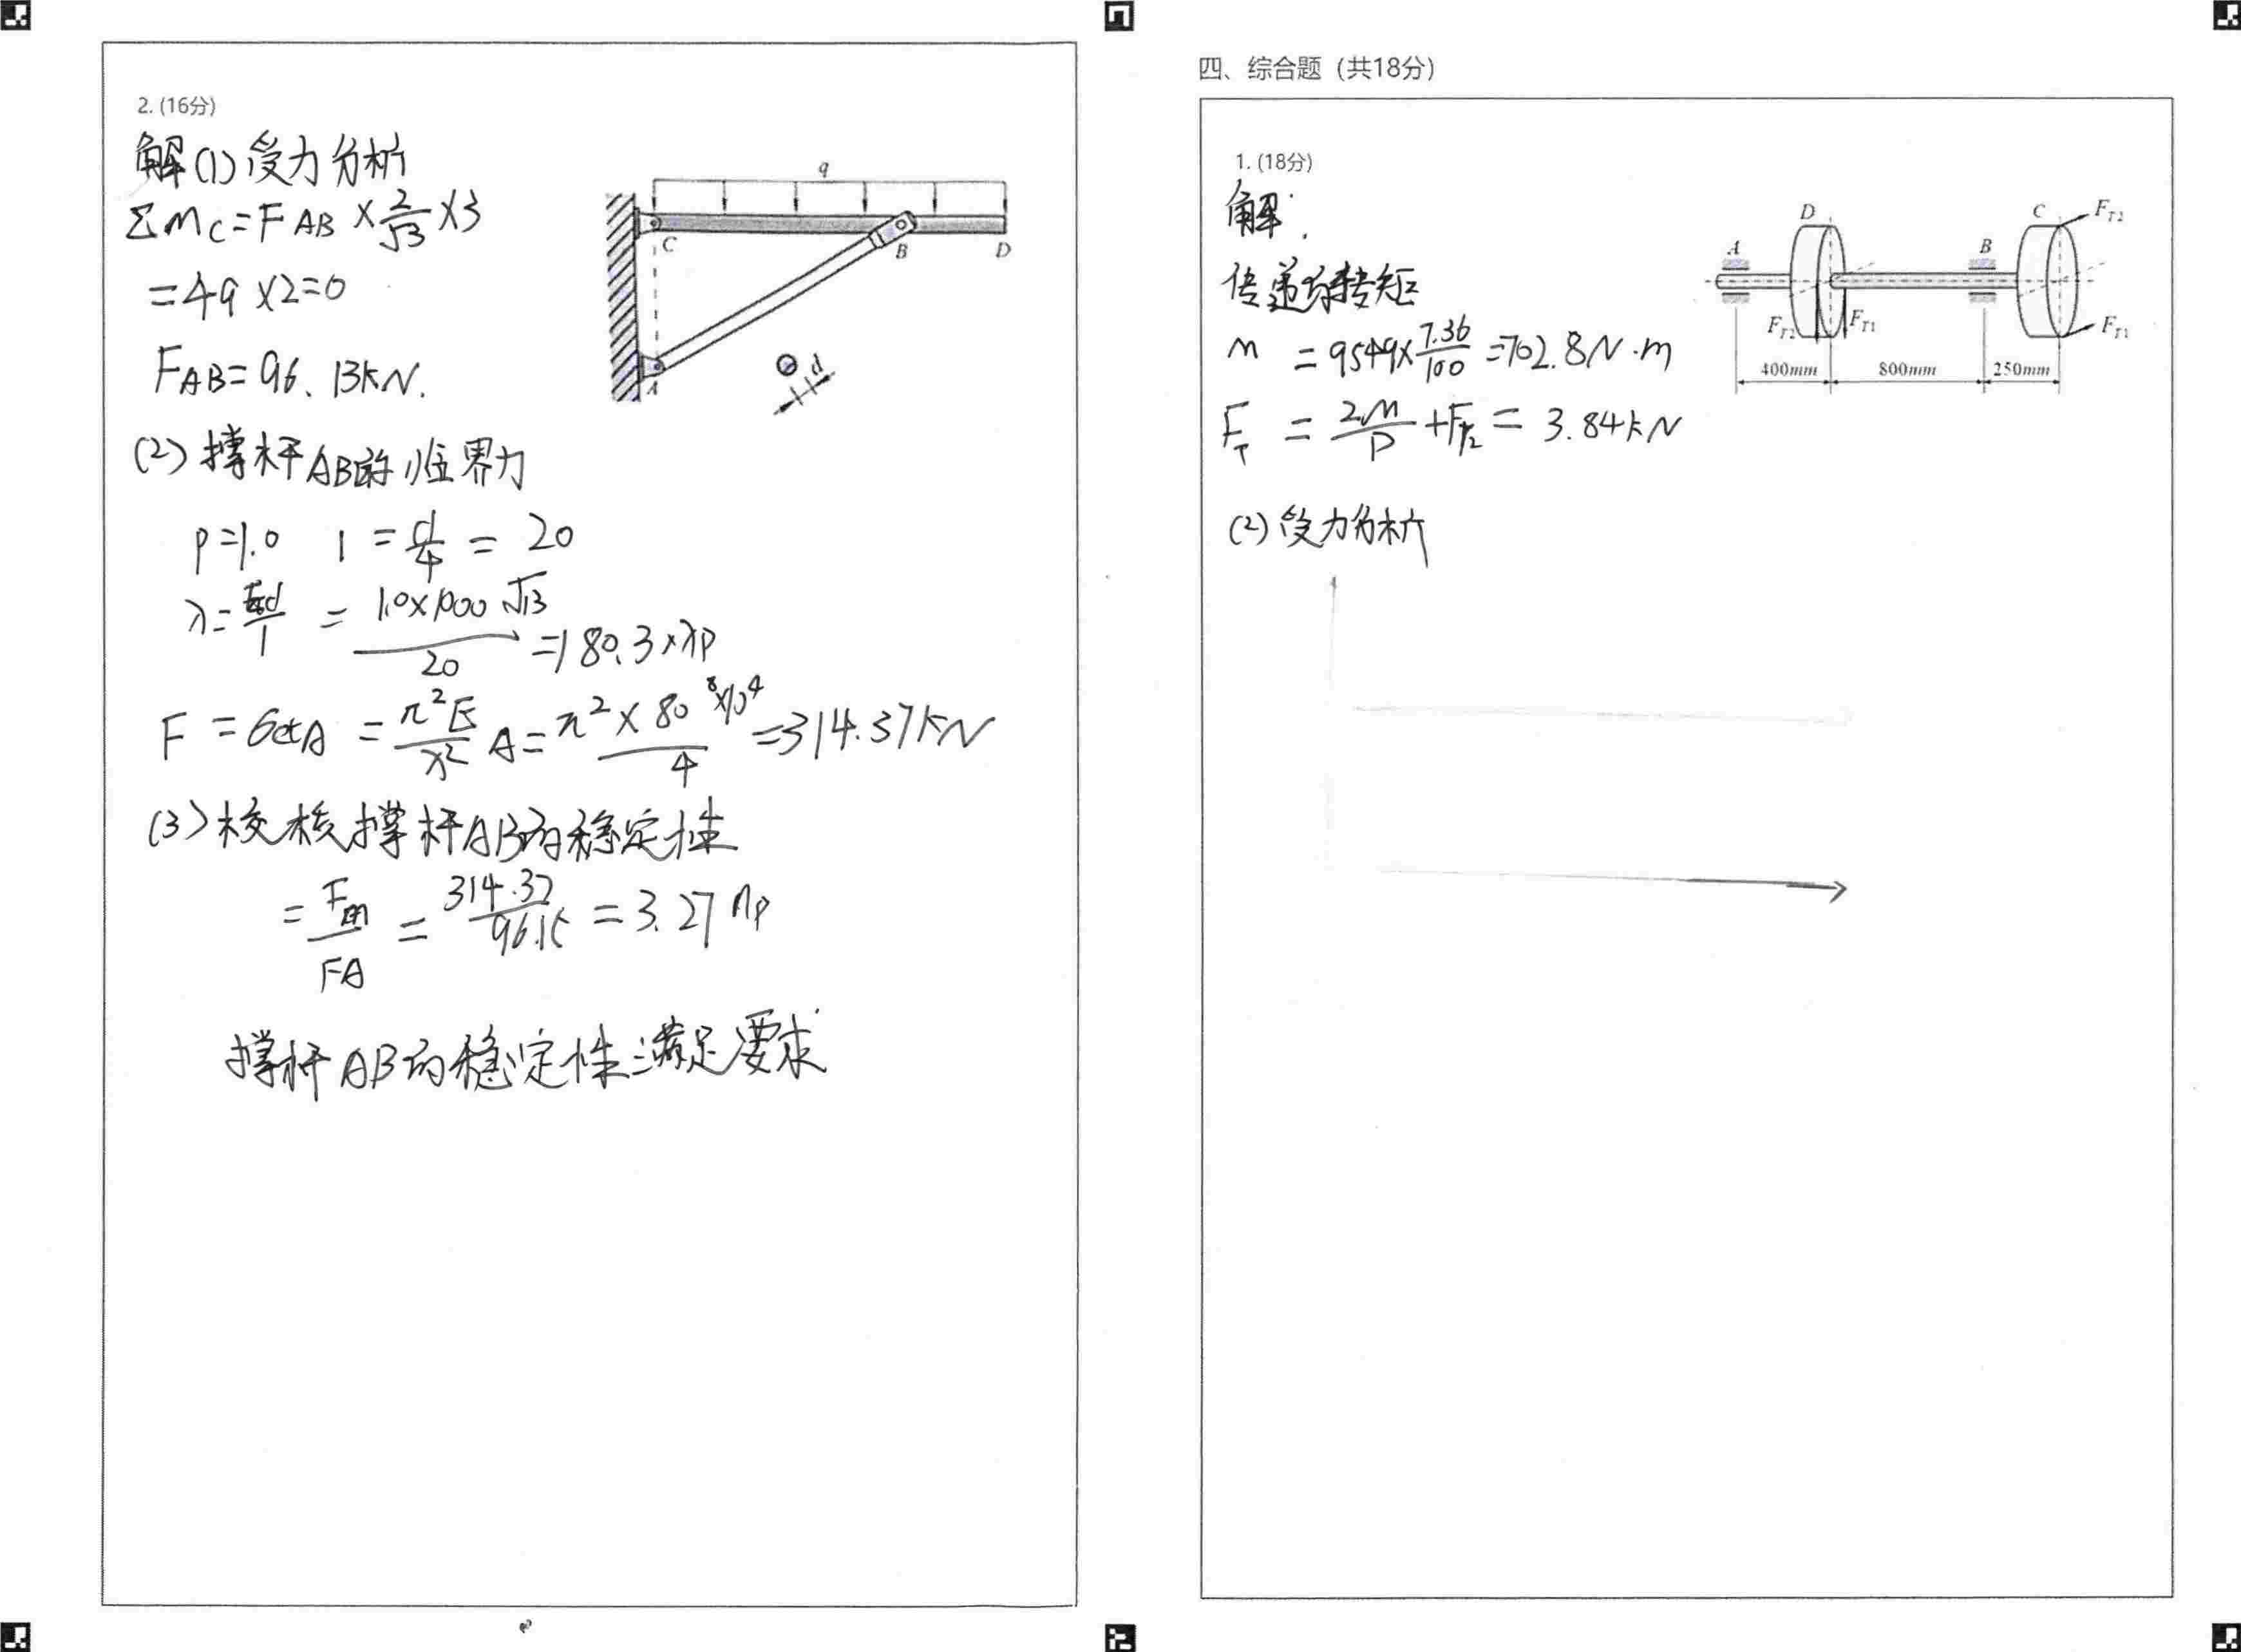 2. (16分)
解(1)受力分析
ΣMC=FAB×2/√13×3
=4q×2=0
FAB=96.13kN.
q
C
B
D
A
d
(2)撑杆AB的临界力
μ=1.0 i=d/4=20
λ= =1.0×1000√13/20=180.3×λp
F=σcrA=π²E/λ²A=π²×80 ×10⁴/4=314.37kN
(3)校核撑杆AB的稳定性
=F /FA=314.37/96.15=3.27
撑杆AB的稳定性满足要求
四、综合题（共18分）
1. (18分)
解:
传递转矩
M=9549×7.36/100=702.8N·m
FT=2M/D+FT2=3.84kN
(2)受力分析
A
D
B
C
FT2
FT2
FT1
FT1
400mm
800mm
250mm